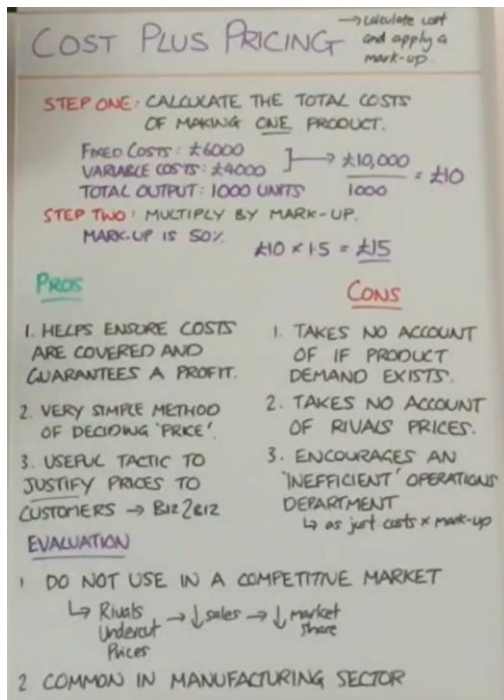 COST PLUS PRICING
→ calculate cost
and apply a
mark-up.
STEP ONE: CALCULATE THE TOTAL COSTS
OF MAKING ONE PRODUCT.
FIXED COSTS: £6000
VARIABLE COSTS: £4000
TOTAL OUTPUT: 1000 UNITS
→ £10,000
1000
= £10
STEP TWO: MULTIPLY BY MARK-UP.
MARK-UP IS 50%
£10 × 1.5 = £15
PROS
1. HELPS ENSURE COSTS
ARE COVERED AND
GUARANTEES A PROFIT.
2. VERY SIMPLE METHOD
OF DECIDING 'PRICE'.
3. USEFUL TACTIC TO
JUSTIFY PRICES TO
CUSTOMERS → BIZ2BIZ
CONS
1. TAKES NO ACCOUNT
OF IF PRODUCT
DEMAND EXISTS.
2. TAKES NO ACCOUNT
OF RIVALS PRICES.
3. ENCOURAGES AN
'INEFFICIENT' OPERATIONS
DEPARTMENT
↳ as just costs × mark-up
EVALUATION
1 DO NOT USE IN A COMPETITIVE MARKET
↳ Rivals → ↓ sales → ↓ market
Undercut share
Prices
2 COMMON IN MANUFACTURING SECTOR